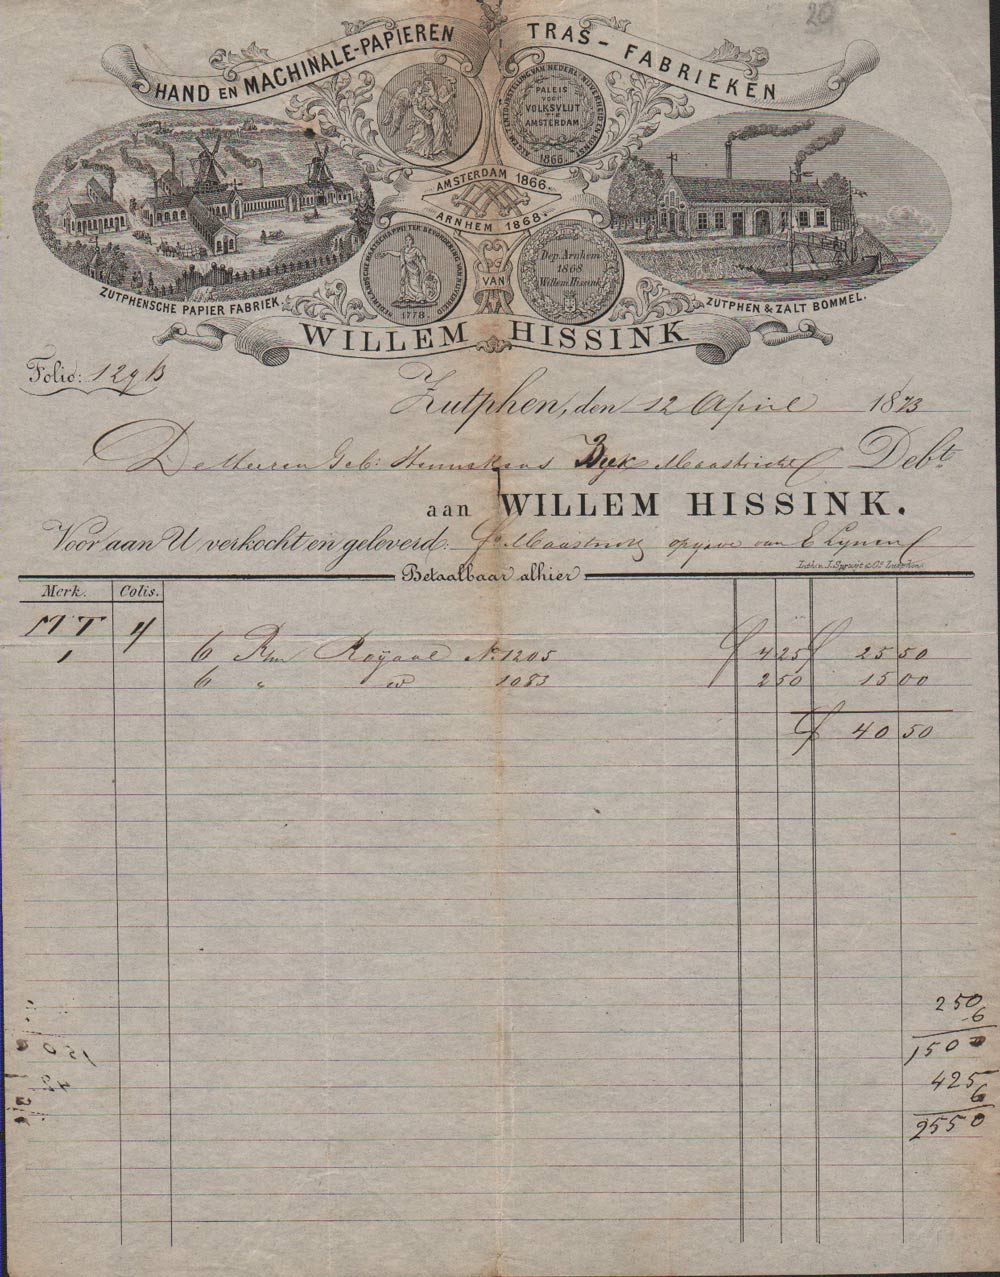 20
HAND EN MACHINALE-PAPIEREN
TRAS-FABRIEKEN
PALEIS
VOOR
VOLKSVLIJT
TE
AMSTERDAM
1866.
AMSTERDAM 1866.
ARNHEM 1868.
VAN
1778.
Dep. Arnhem
1868
Willem Hissink
ZUTPHENSCHE PAPIER FABRIEK.
ZUTPHEN & ZALT BOMMEL.
WILLEM HISSINK
Folio: 129 B
Zutphen, den 12 April 1873
De Heeren Geb: Maastricht Debt.
aan WILLEM HISSINK.
Voor aan U verkocht en geleverd: fo Maastricht van E Lynen
Lith. v. J. Spruijt & Co. Zutphen
Betaalbaar alhier
Merk. Colis.
MT 4
1 6 Rm Royaal No. 1205 f 4 25 f 25 50
6 " 1083 2 50 15 00
f 40 50
250
6
1500
425
6
2550